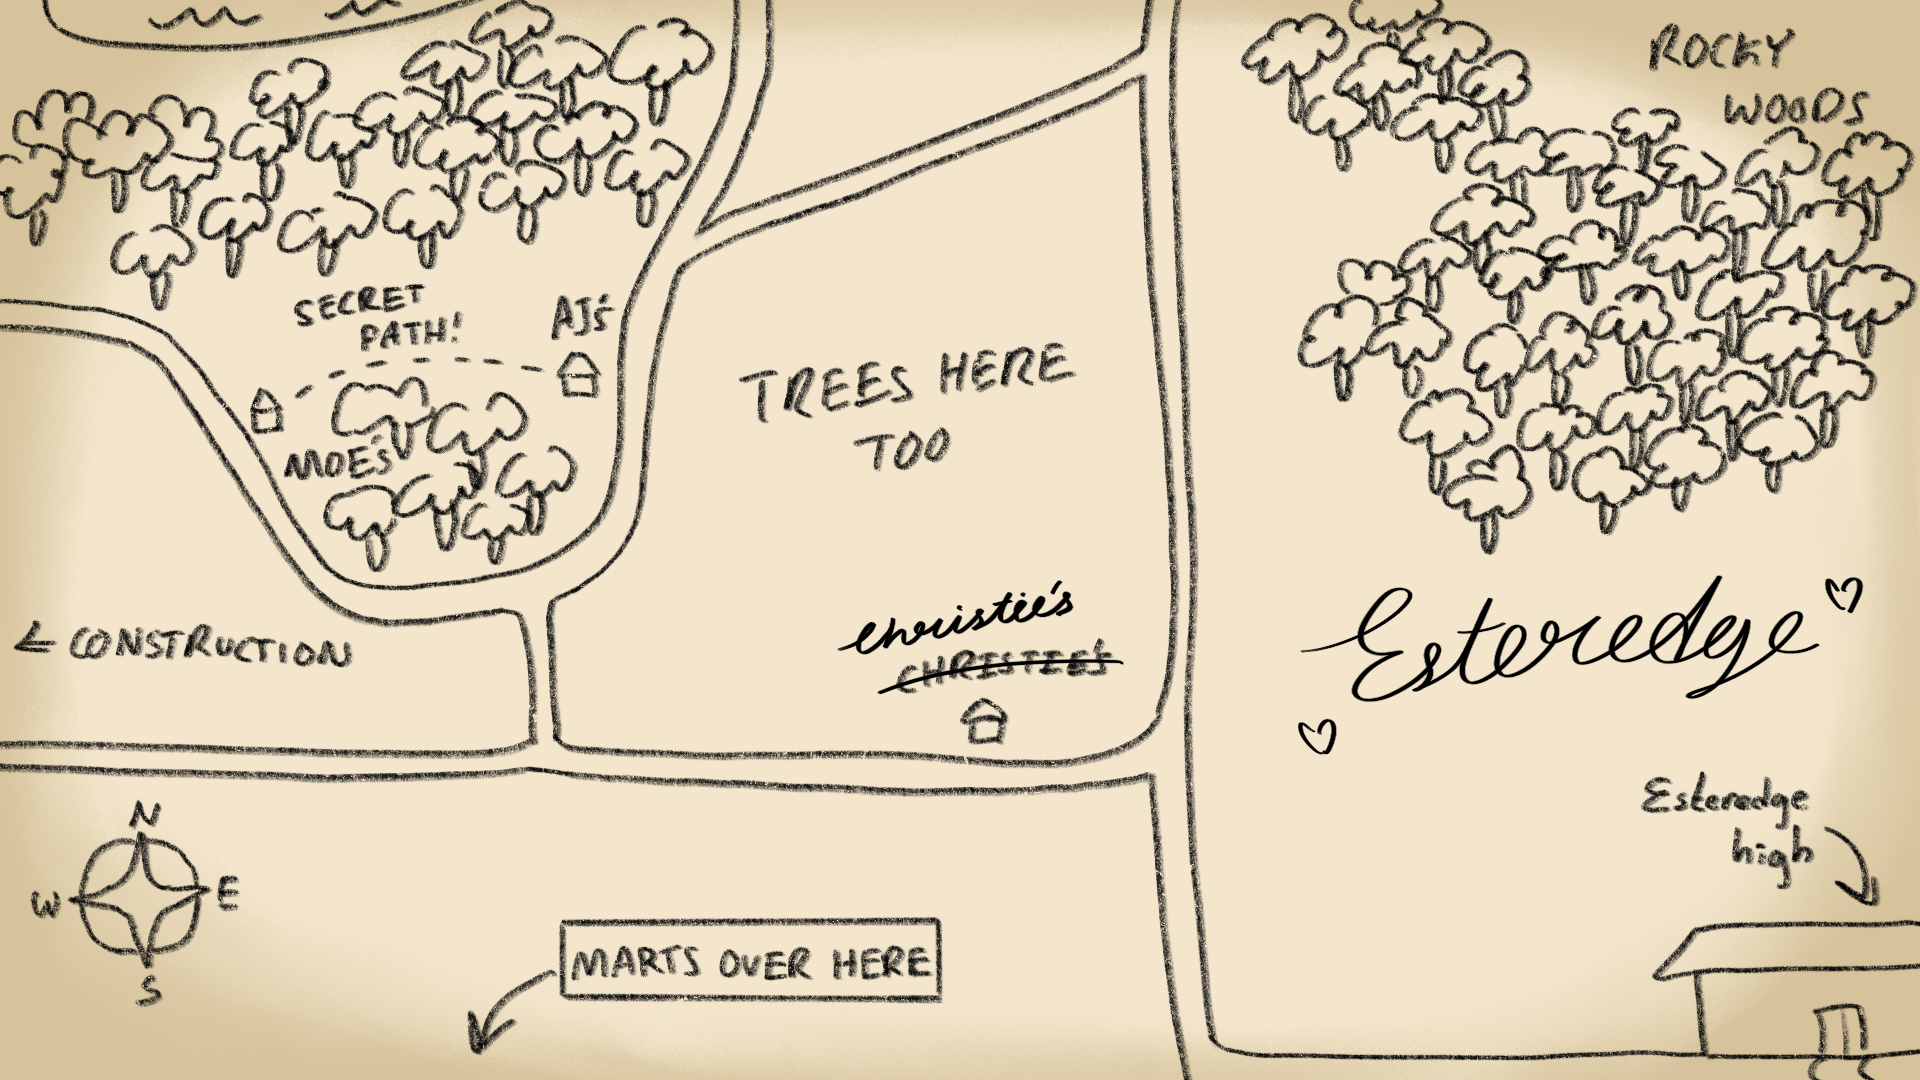 ROCKY
WOODS
SECRET
PATH!
AJ's
MOE's
TREES HERE
TOO
← CONSTRUCTION
Christie's
CHRISTIE'S
Esteredge
Esteredge
high
N
W E
S
MARTS OVER HERE